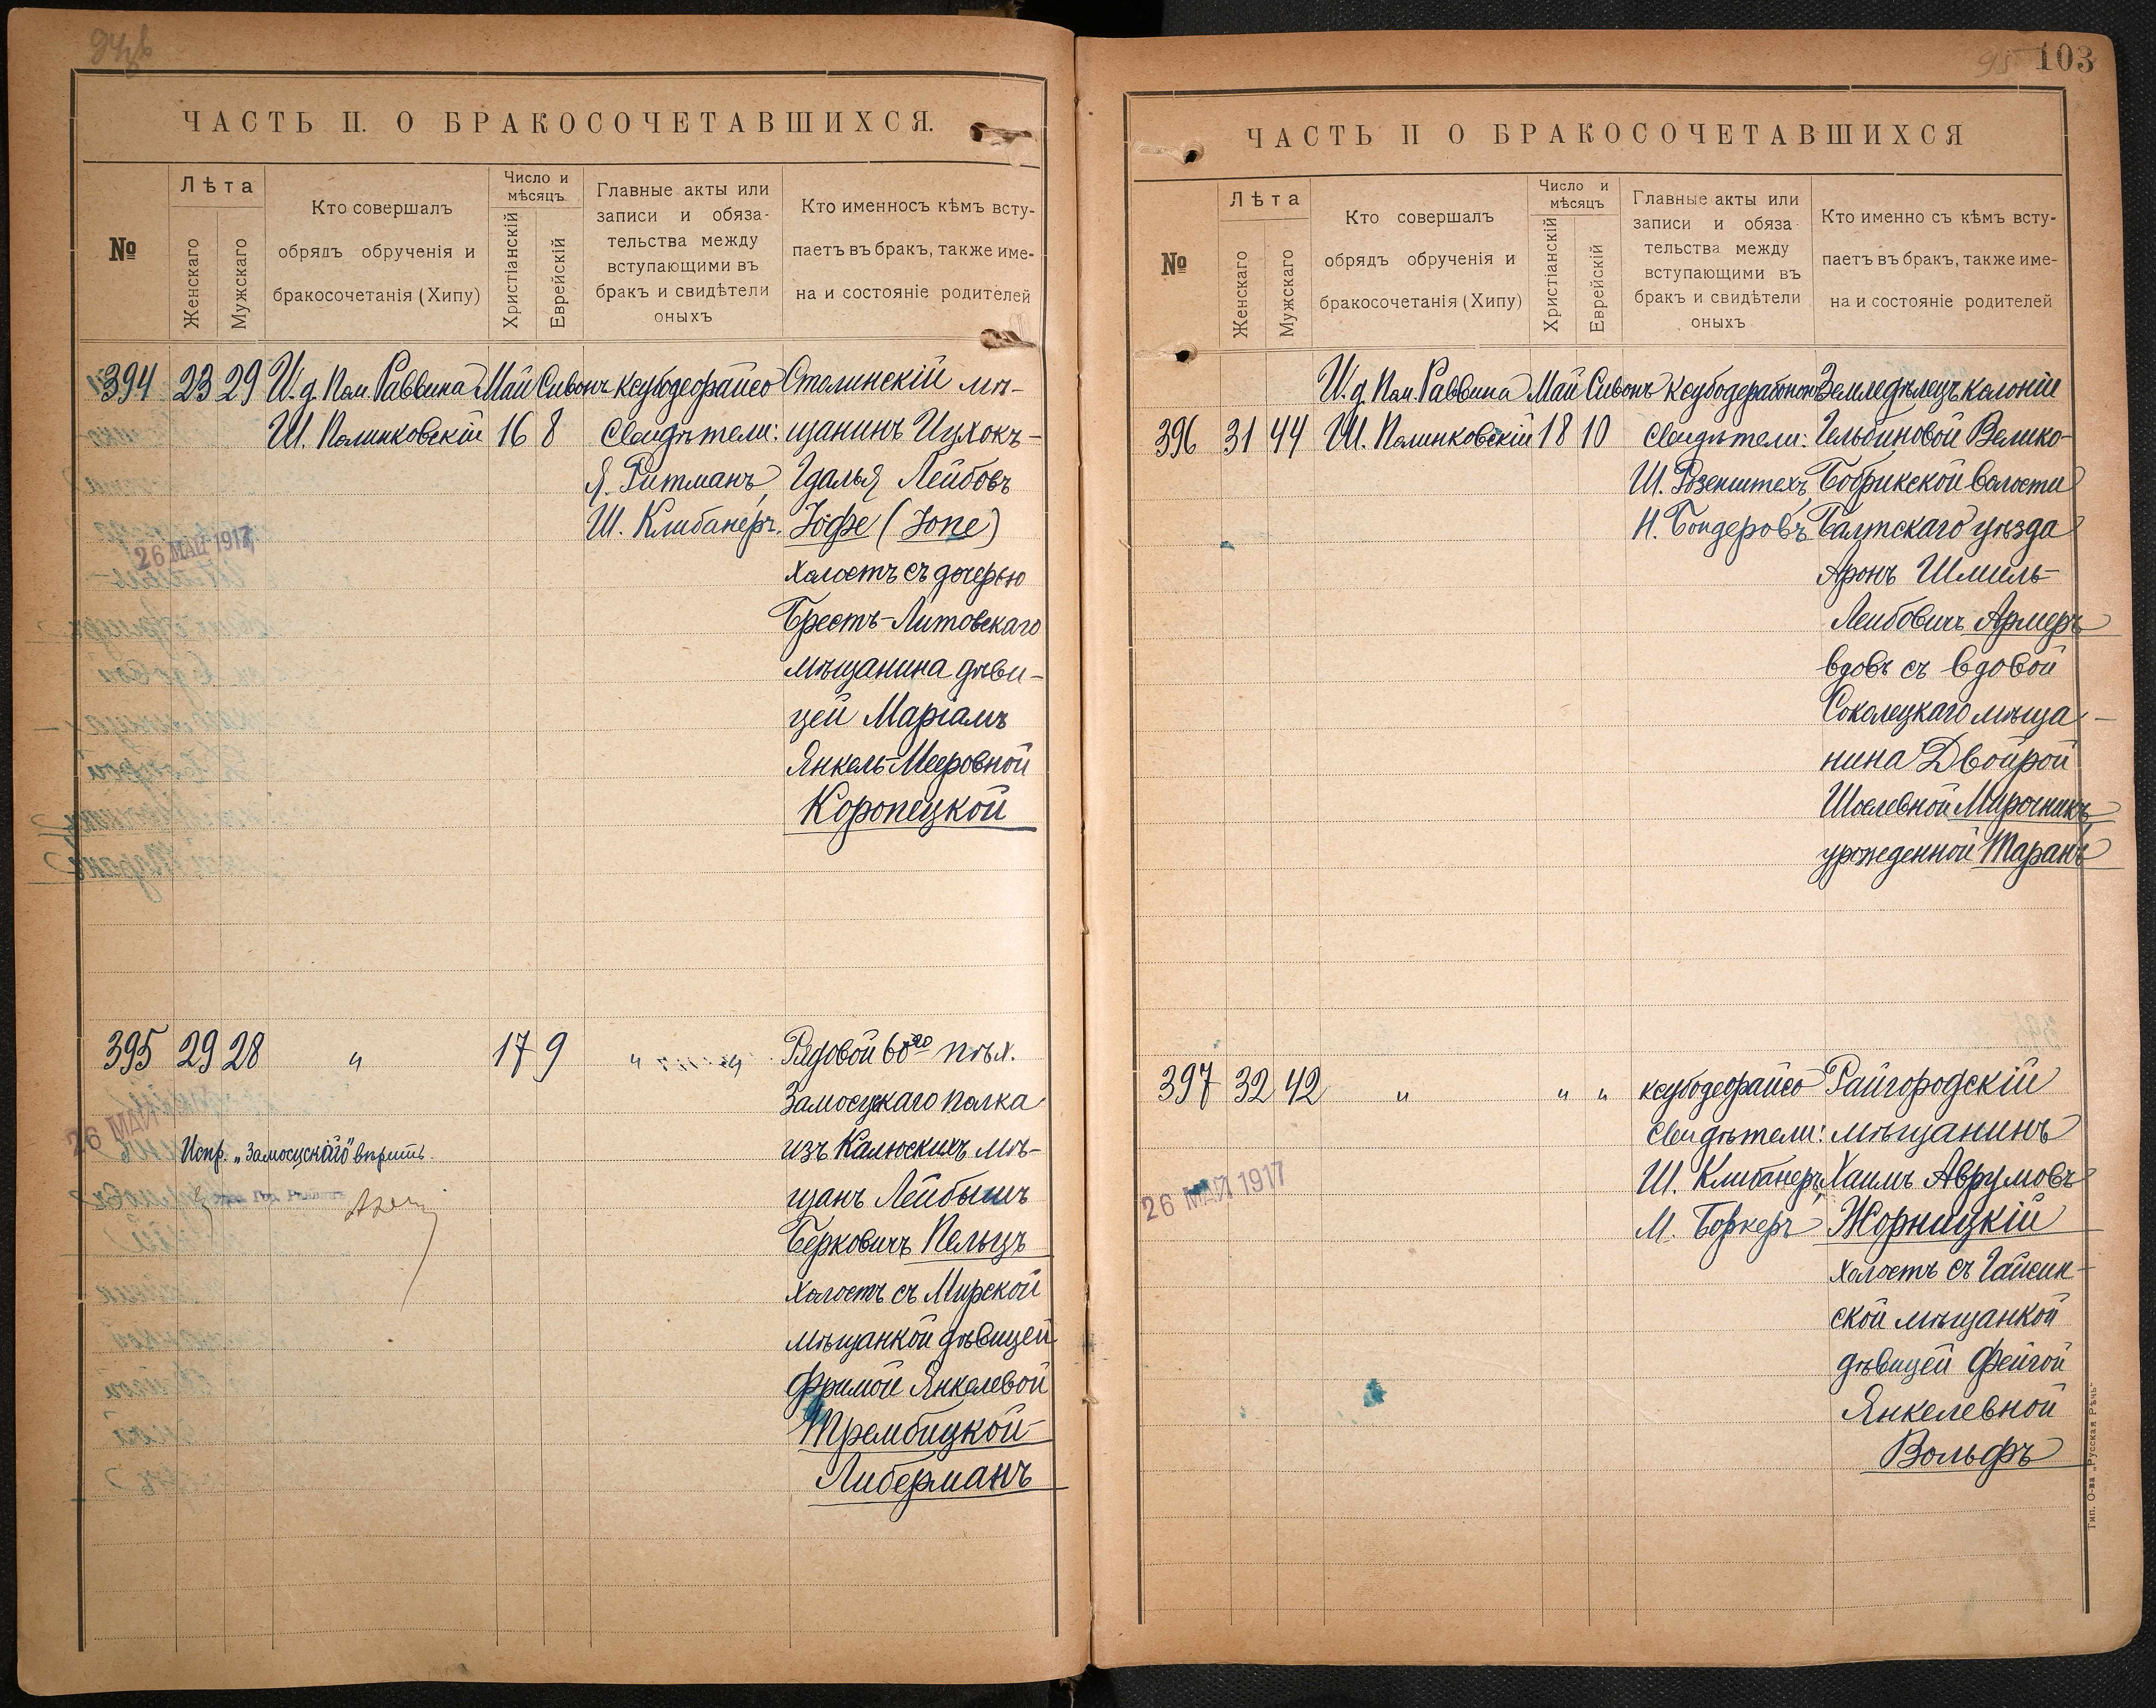 ЧАСТЬ II. О БРАКОСОЧЕТАВШИХСЯ.
№
Лѣта
Женскаго
Мужскаго
Кто совершалъ
обрядъ обрученія и
бракосочетанія (Хипу)
Число и
мѣсяцъ
Христіанскій
Еврейскій
Главные акты или
записи и обяза-
тельства между
вступающими въ
бракъ и свидѣтели
оныхъ
Кто именносъ кѣмъ всту-
паетъ въ бракъ, также име-
на и состояніе родителей
394 23 29 И. д. Пом. Раввина Май Сивонъ ксубодеорайсо Столинскій мѣ-
Ш. Полинковскій 16 8 Свидѣтели: щанинъ Ицхокъ-
Я. Ритманъ, Гдалья Лейбовъ
Ш. Клибанеръ. Іофе (Іопе)
26 МАЙ 1917
холостъ съ дочерью
Брестъ-Литовскаго
мѣщанина дѣви-
цей Маріамъ
Янкель-Мееровной
Коропецкой
395 29 28 " 17 9 " " Рядовой 60го пѣх.
Замосцкаго полка
26 МАЙ
Испр. „Замосцскаго" вѣрить.
изъ Калюскихъ мѣ-
щанъ Лейбышъ
Беркович Пельцъ
холостъ съ Мирской
мѣщанкой дѣвицей
Фримой Янкелевой
Трембицкой-
Либерманъ
103
95
ЧАСТЬ II О БРАКОСОЧЕТАВШИХСЯ
№
Лѣта
Женскаго
Мужскаго
Кто совершалъ
обрядъ обрученія и
бракосочетанія (Хипу)
Число и
мѣсяцъ
Христіанскій
Еврейскій
Главные акты или
записи и обяза
тельства между
вступающими въ
бракъ и свидѣтели
оныхъ
Кто именно съ кѣмъ всту-
паетъ въ бракъ, также име-
на и состояніе родителей
И. д. Пом. Раввина Май Сивонъ Земледѣлецъ колоніи
396 31 44 Ш. Полинковскій 18 10 Свидѣтели: Гельбиновой Велико-
Ш. Розенштехъ, Бобрикской волости
Н. Бондеровъ Балтскаго уѣзда
Аронъ Шмиль-
Лейбовичъ Армеръ
вдовъ съ вдовой
Соколецкаго мѣща-
нина Двойрой
Шоелевной Мирочникъ,
урожденной Таранъ
397 32 42 " " " ксубодеорайсо Райгородскій
Свидѣтели: мѣщанинъ
Ш. Клибанеръ, Хаимъ Аврумовъ
26 МАЙ 1917
М. Боркеръ Жорницкій
холостъ съ Гайсин-
ской мѣщанкой
дѣвицей Фейгой
Янкелевной
Вольфъ
Тип. О-ва „Русская Рѣчь"